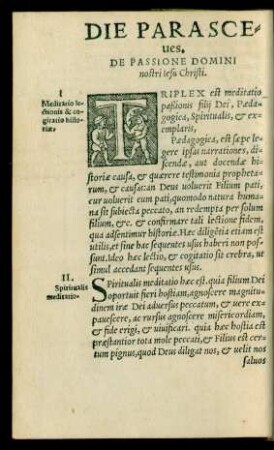 DIE PARASCE=
ues,
DE PASSIONE DOMINI
nostri Iesu Christi.
I
Meditatio lectionis & cogitatio historiae
TRIPLEX est meditatio
passionis filij Dei, Pædagogica, Spiritualis, &
exemplaris,
Pædagogica, est sæpe legere ipsas narrationes, discendæ, aut docendæ historiæ causa, & quærere testimonia prophetarum, & causas: an Deus uoluerit Filium pati,
cur uoluerit eum pati, quomodo natura humana sit subiecta peccato, an redempta per solum
filium, &c. & confirmare tali lectione fidem,
qua adsentimur historiæ. Hæc diligētia etiam est
utilis, et sine hac sequentes usus haberi non possunt. Ideo hæc lectio, & cogitatio sit crebra, ut
simul accedant sequentes usus.
II.
Spiritualis
meditatio.
Spiritualis meditatio hæc est. quia filium Dei
oportuit fieri hostiam, agnoscere magnitudinem iræ Dei aduersus peccatum, & uere expauescere, ac rursus agnoscere misericordiam,
& fide erigi, & uiuificari. quia hæc hostia est
præstantior tota mole peccati, & Filius est certum pignus, quod Deus diligat nos, & uelit nos
saluos